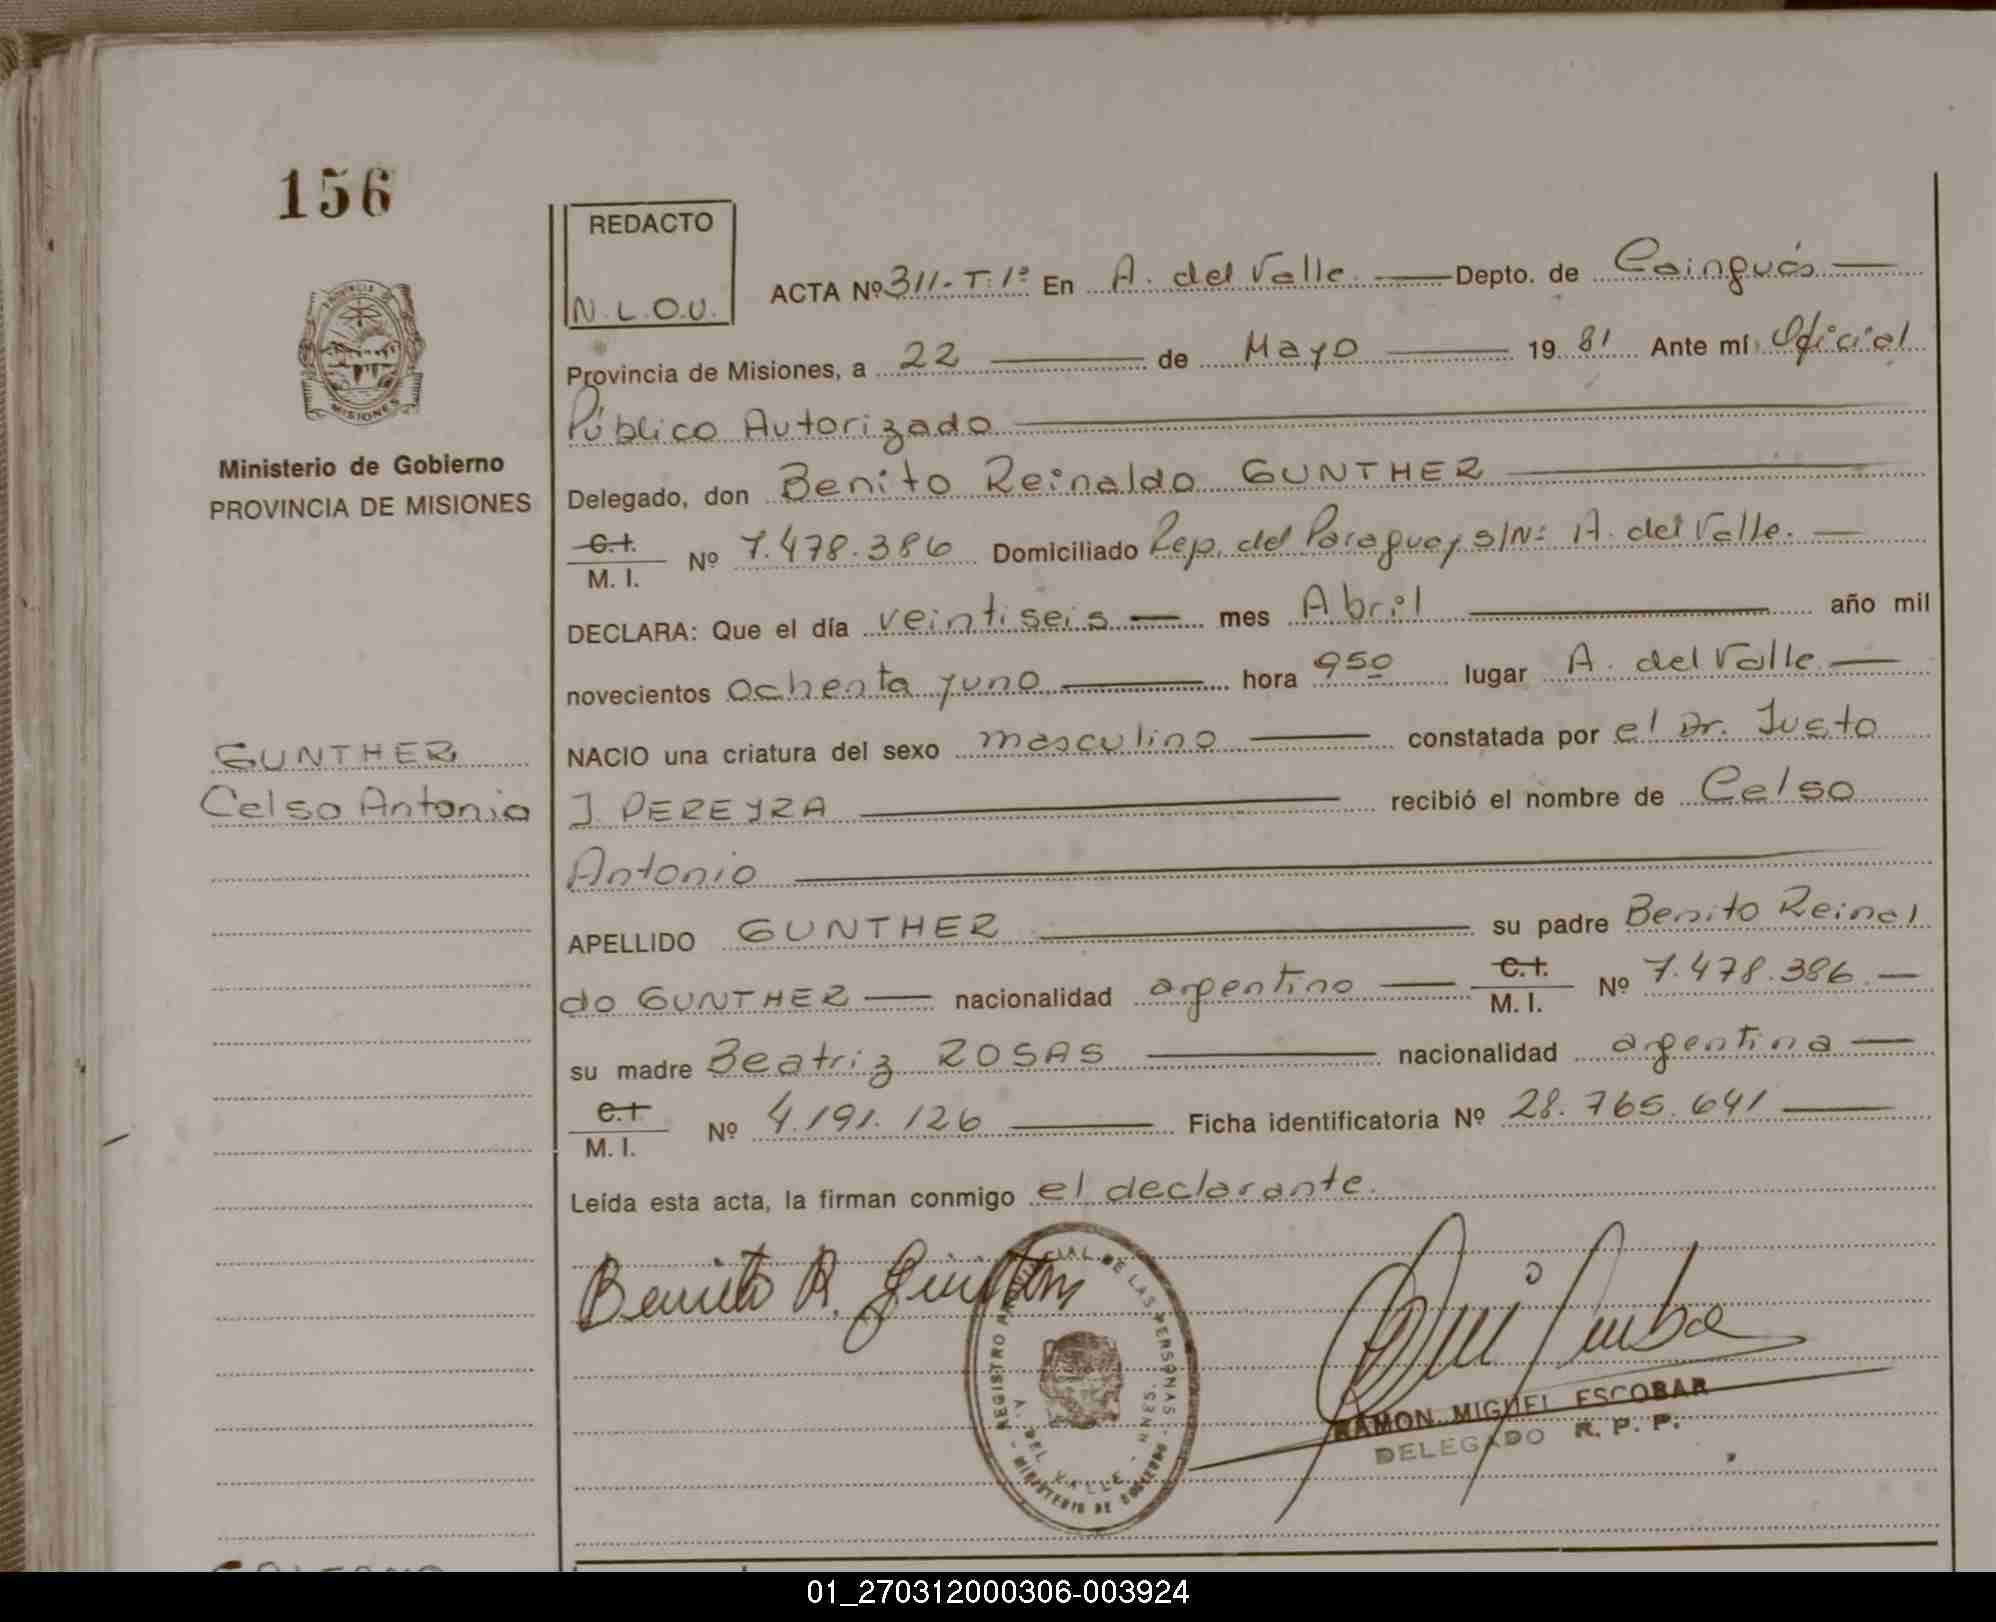 156
REDACTO
N.L.O.U.
ACTA Nº 311-T.1º En A. del Valle. Depto. de Cainguás
Provincia de Misiones, a 22 de Mayo 19 81 Ante mí Oficial
Público Autorizado
Delegado, don Benito Reinaldo GUNTHER
C.I. M. I. Nº 7.478.386 Domiciliado Rep. del Paraguay s/Nº A. del Valle.
DECLARA: Que el día veintiseis mes Abril año mil
novecientos ochenta y uno hora 950 lugar A. del Valle
NACIO una criatura del sexo masculino constatada por el Dr. Justo
J. PEREYRA recibió el nombre de Celso
Antonio
APELLIDO GUNTHER su padre Benito Reinal
do GUNTHER nacionalidad argentino C.I. M. I. Nº 7.478.386
su madre Beatriz ROSAS nacionalidad argentina
C.I. M. I. Nº 4.191.126 Ficha identificatoria Nº 28.765.641
Leída esta acta, la firman conmigo el declarante.
PROVINCIA DE
MISIONES
Ministerio de Gobierno
PROVINCIA DE MISIONES
GUNTHER
Celso Antonio
Benito R. Gunther
REGISTRO PROVINCIAL DE LAS PERSONAS
MINISTERIO DE GOBIERNO
A. DEL VALLE - MNES.
RAMON MIGUEL ESCOBAR
DELEGADO R. P. P.
01_270312000306-003924